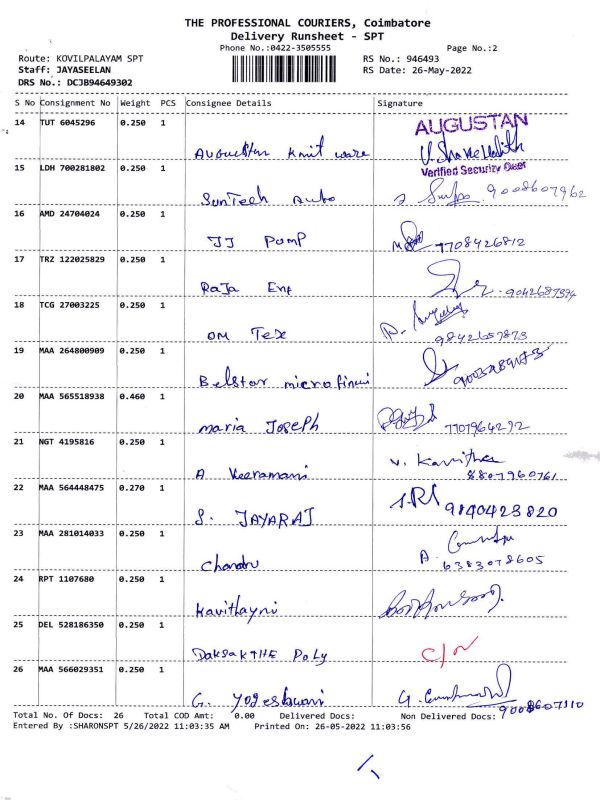 THE PROFESSIONAL COURIERS, Coimbatore
Delivery Runsheet - SPT
Phone No.:0422-3505555 Page No.:2
Route: KOVILPALAYAM SPT RS No.: 946493
Staff: JAYASEELAN RS Date: 26-May-2022
DRS No.: DCJB94649302
S No Consignment No Weight PCS Consignee Details Signature
14 TUT 6045296 0.250 1 AUGUSTAN
Augustan Knit ware
Verified Security Seer
15 LDH 700281802 0.250 1
SunTech Auto 9008607962
16 AMD 24704024 0.250 1
JJ Pump 7708426812
17 TRZ 122025829 0.250 1
Raja Enf 9042687374
18 TCG 27003225 0.250 1
OM Tex 9842657873
19 MAA 264800909 0.250 1
Belstar microfinui
20 MAA 565518938 0.460 1
maria Joseph 7707964292
21 NGT 4195816 0.250 1 V. Kavitha
A Veeramani 8807960761
22 MAA 564448475 0.270 1
S. JAYARAJ 9840423820
23 MAA 281014033 0.250 1
Chandru A. 6383078605
24 RPT 1107680 0.250 1
Kavithayni
25 DEL 528186350 0.250 1
DAKSAKTHE Poly C/N
26 MAA 566029351 0.250 1
G. Yogeshwari 9008607310
Total No. Of Docs: 26 Total COD Amt: 0.00 Delivered Docs: Non Delivered Docs:
Entered By :SHARONSPT 5/26/2022 11:03:35 AM Printed On: 26-05-2022 11:03:56